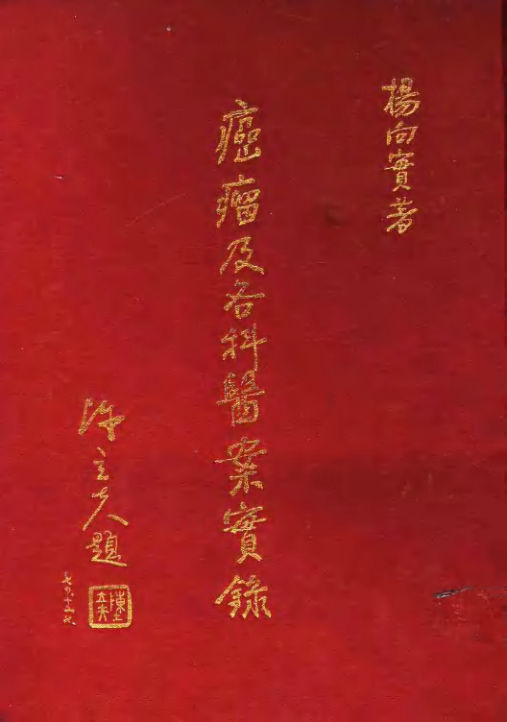 楊向實著
癌瘤及各科醫案實錄
陳立夫題